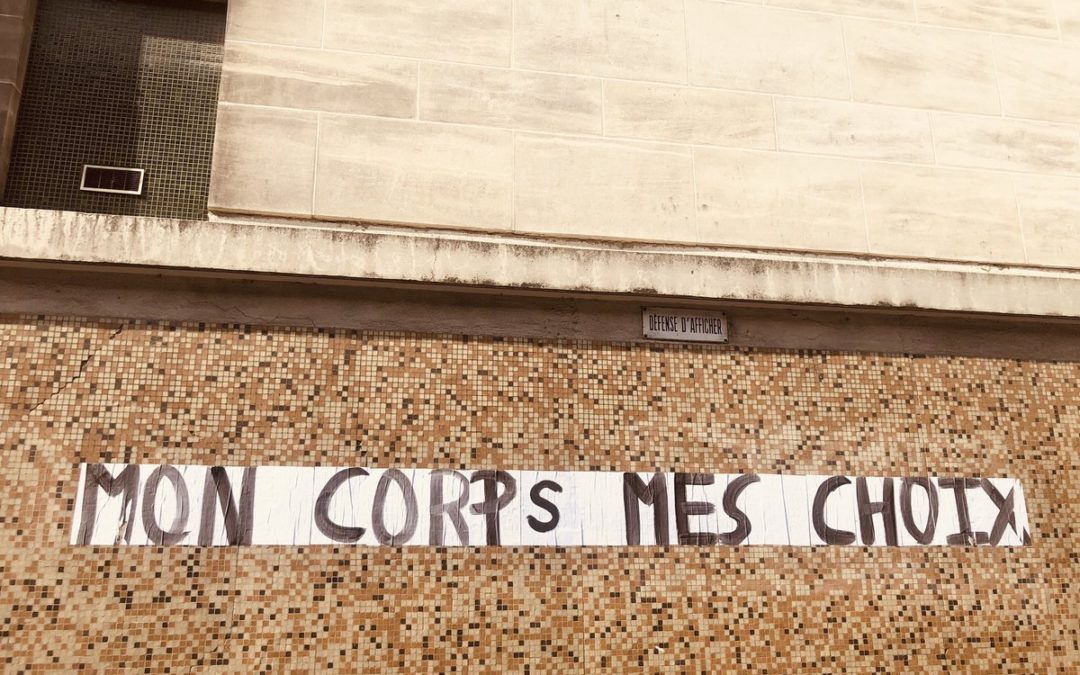 DÉFENSE D'AFFICHER
MON CORPS MES CHOIX